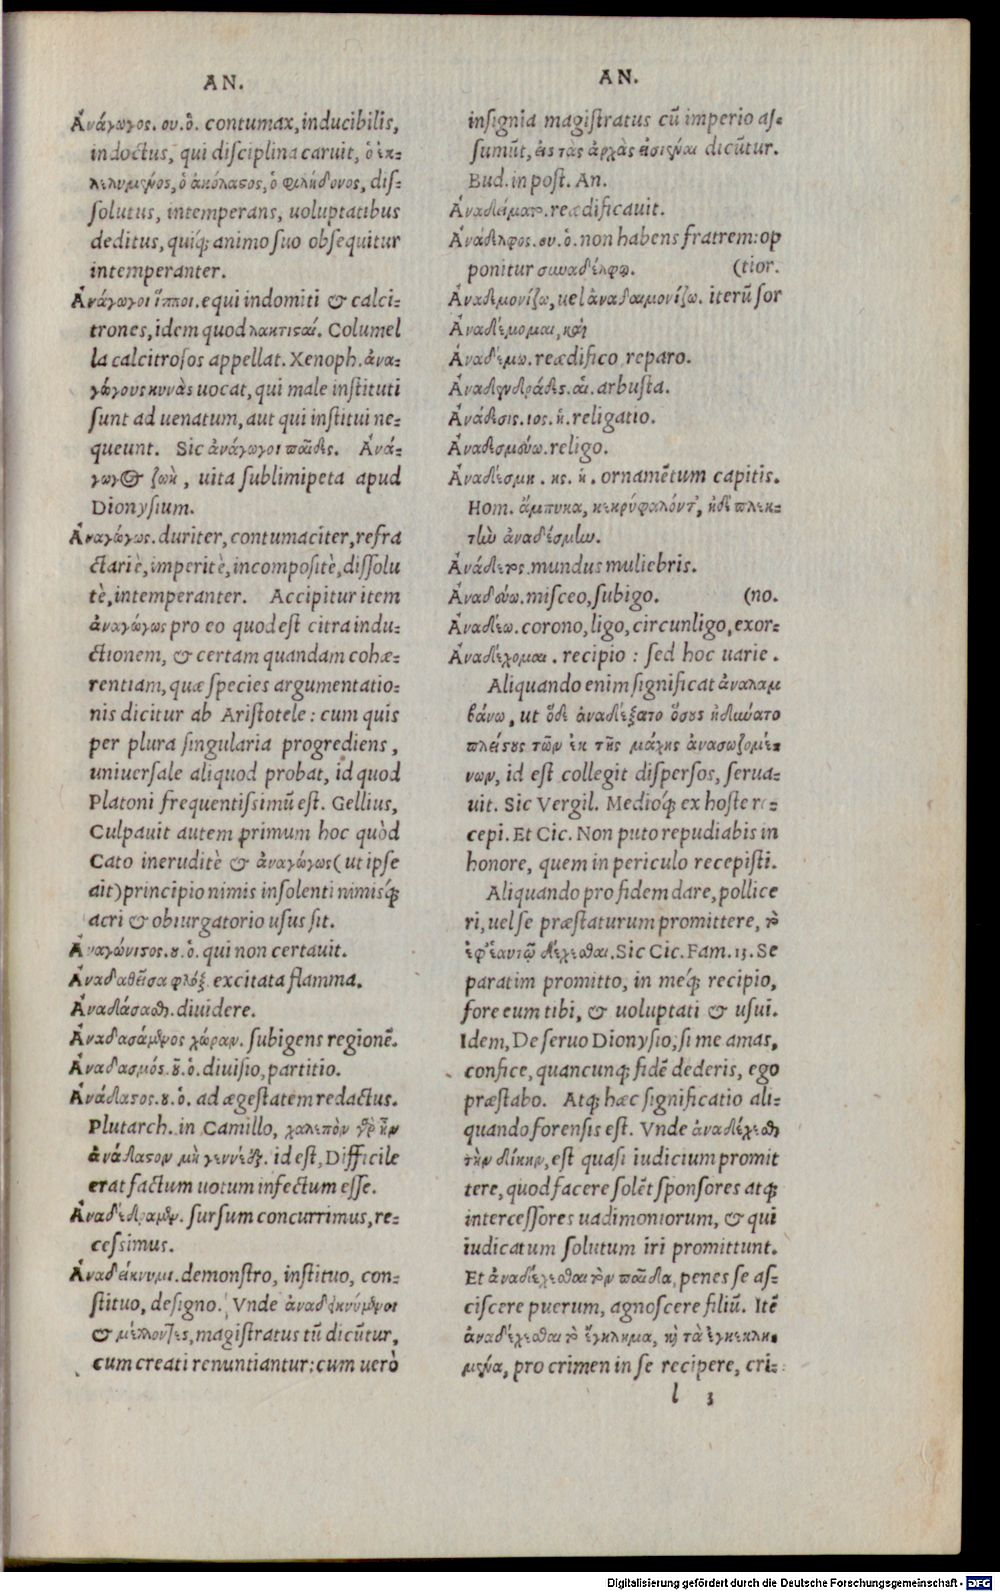 AN.
Ἀνάγωγος. ου. ὁ. contumax, inducibilis,
indoctus, qui disciplina caruit, ὁ ἐκ-
λελυμένος, ὁ ἀκόλαστος, ὁ φιλήδονος, dis-
solutus, intemperans, uoluptatibus
deditus, quiq; animo suo obsequitur
intemperanter.
Ἀνάγωγοι ἵπποι. equi indomiti & calci-
trones, idem quod λακτισαί. Columel
la calcitrosos appellat. Xenoph. ἀνα-
γώγους κυνὰς uocat, qui male instituti
sunt ad uenatum, aut qui institui ne-
queunt. Sic ἀνάγωγοι παῖδες. Ἀνά-
γωγος ζωὴ, uita sublimipeta apud
Dionysium.
Ἀναγώγως. duriter, contumaciter, refra
ctariè, imperitè, incompositè, dissolu
tè, intemperanter. Accipitur item
ἀναγώγως pro eo quod est citra indu-
ctionem, & certam quandam cohæ-
rentiam, quæ species argumentatio-
nis dicitur ab Aristotele: cum quis
per plura singularia progrediens,
uniuersale aliquod probat, id quod
Platoni frequentissimũ est. Gellius,
Culpauit autem primum hoc quòd
Cato ineruditè & ἀναγώγως (ut ipse
ait) principio nimis insolenti nimisq́;
acri & obiurgatorio usus sit.
Ἀναγώνιστος. ȣ. ὁ. qui non certauit.
Ἀναδαθεῖσα φλόξ. excitata flamma.
Ἀναδάσασθαι. diuidere.
Ἀναδασάμενος χώραν. subigens regionẽ.
Ἀναδασμός. ȣ̃. ὁ. diuisio, partitio.
Ἀνάδατος. ȣ. ὁ. ad ægestatem redactus.
Plutarch. in Camillo, χαλεπὸν γὰρ ἦν
ἀνάδατον μὴ γενέσθαι. id est, Difficile
erat factum uotum infectum esse.
Ἀναδέδραμεν. sursum concurrimus, re-
cessimus.
Ἀναδείκνυμι. demonstro, instituo, con-
stituo, designo. Vnde ἀναδεικνύμενοι
& μέλλοντες, magistratus tũ dicũtur,
cum creati renuntiantur: cum uerò
AN.
insignia magistratus cũ imperio as-
sumũt, εἰς τὰς ἀρχὰς εἰσιέναι dicũtur.
Bud. in post. An.
Ἀναδείματο. reædificauit.
Ἀνάδελφος. ου. ὁ. non habens fratrem: op
ponitur συναδέλφῳ. (tior.
Ἀναδεμονίζω, uel ἀναδαιμονίζω. iterũ sor
Ἀναδέμομαι, καὶ
Ἀναδέμω. reædifico reparo.
Ἀναδενδράδες. αἱ. arbusta.
Ἀνάδεσις. ιος. ἡ. religatio.
Ἀναδεσμεύω. religo.
Ἀναδέσμη. ης. ἡ. ornamẽtum capitis.
Hom. ἄμπυκα, κεκρύφαλόντ', ἠδὲ πλεκ-
τὴν ἀναδέσμην.
Ἀνάδετος. mundus muliebris.
Ἀναδεύω. misceo, subigo. (no.
Ἀναδέω. corono, ligo, circunligo, exor-
Ἀναδέχομαι. recipio: sed hoc uarie.
Aliquando enim significat ἀναλαμ
βάνω, ut ὅδε ἀναδέξατο ὅσους ἠδύνατο
πλείςους τῶν ἐκ τῆς μάχης ἀνασωζομέ-
νων, id est collegit dispersos, serua-
uit. Sic Vergil. Medioq́; ex hoste re-
cepi. Et Cic. Non puto repudiabis in
honore, quem in periculo recepisti.
Aliquando pro fidem dare, pollice
ri, uel se præstaturum promittere, τὸ
ἐφ' ἑαυτῷ δέχεσθαι. Sic Cic. Fam. 13. Se
paratim promitto, in meq́; recipio,
fore eum tibi, & uoluptati & usui.
Idem, De seruo Dionysio, si me amas,
confice, quancunq; fidẽ dederis, ego
præstabo. Atq; hæc significatio ali-
quando forensis est. Vnde ἀναδέχεσθαι
τὴν δίκην, est quasi iudicium promit
tere, quod facere solẽt sponsores atq;
intercessores uadimoniorum, & qui
iudicatum solutum iri promittunt.
Et ἀναδέχεσθαι τὸν παῖδα, penes se as-
ciscere puerum, agnoscere filiũ. Itẽ
ἀναδέχεσθαι τὸ ἔγκλημα, καὶ τὰ ἐγκεκλη-
μένα, pro crimen in se recipere, cri-
l 3
Digitalisierung gefördert durch die Deutsche Forschungsgemeinschaft - DFG